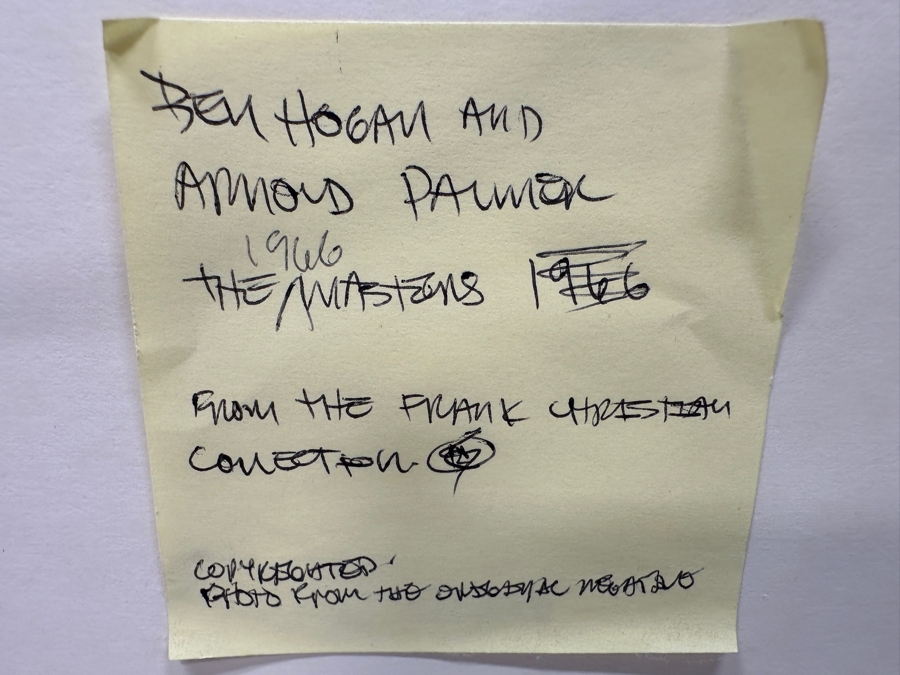 BEN HOGAN AND
ARNOLD PALMER
1966
THE MASTERS 1966
FROM THE FRANK CHRISTIAN
COLLECTION.
COPYRIGHTED
PHOTO FROM THE ORIGINAL NEGATIVE